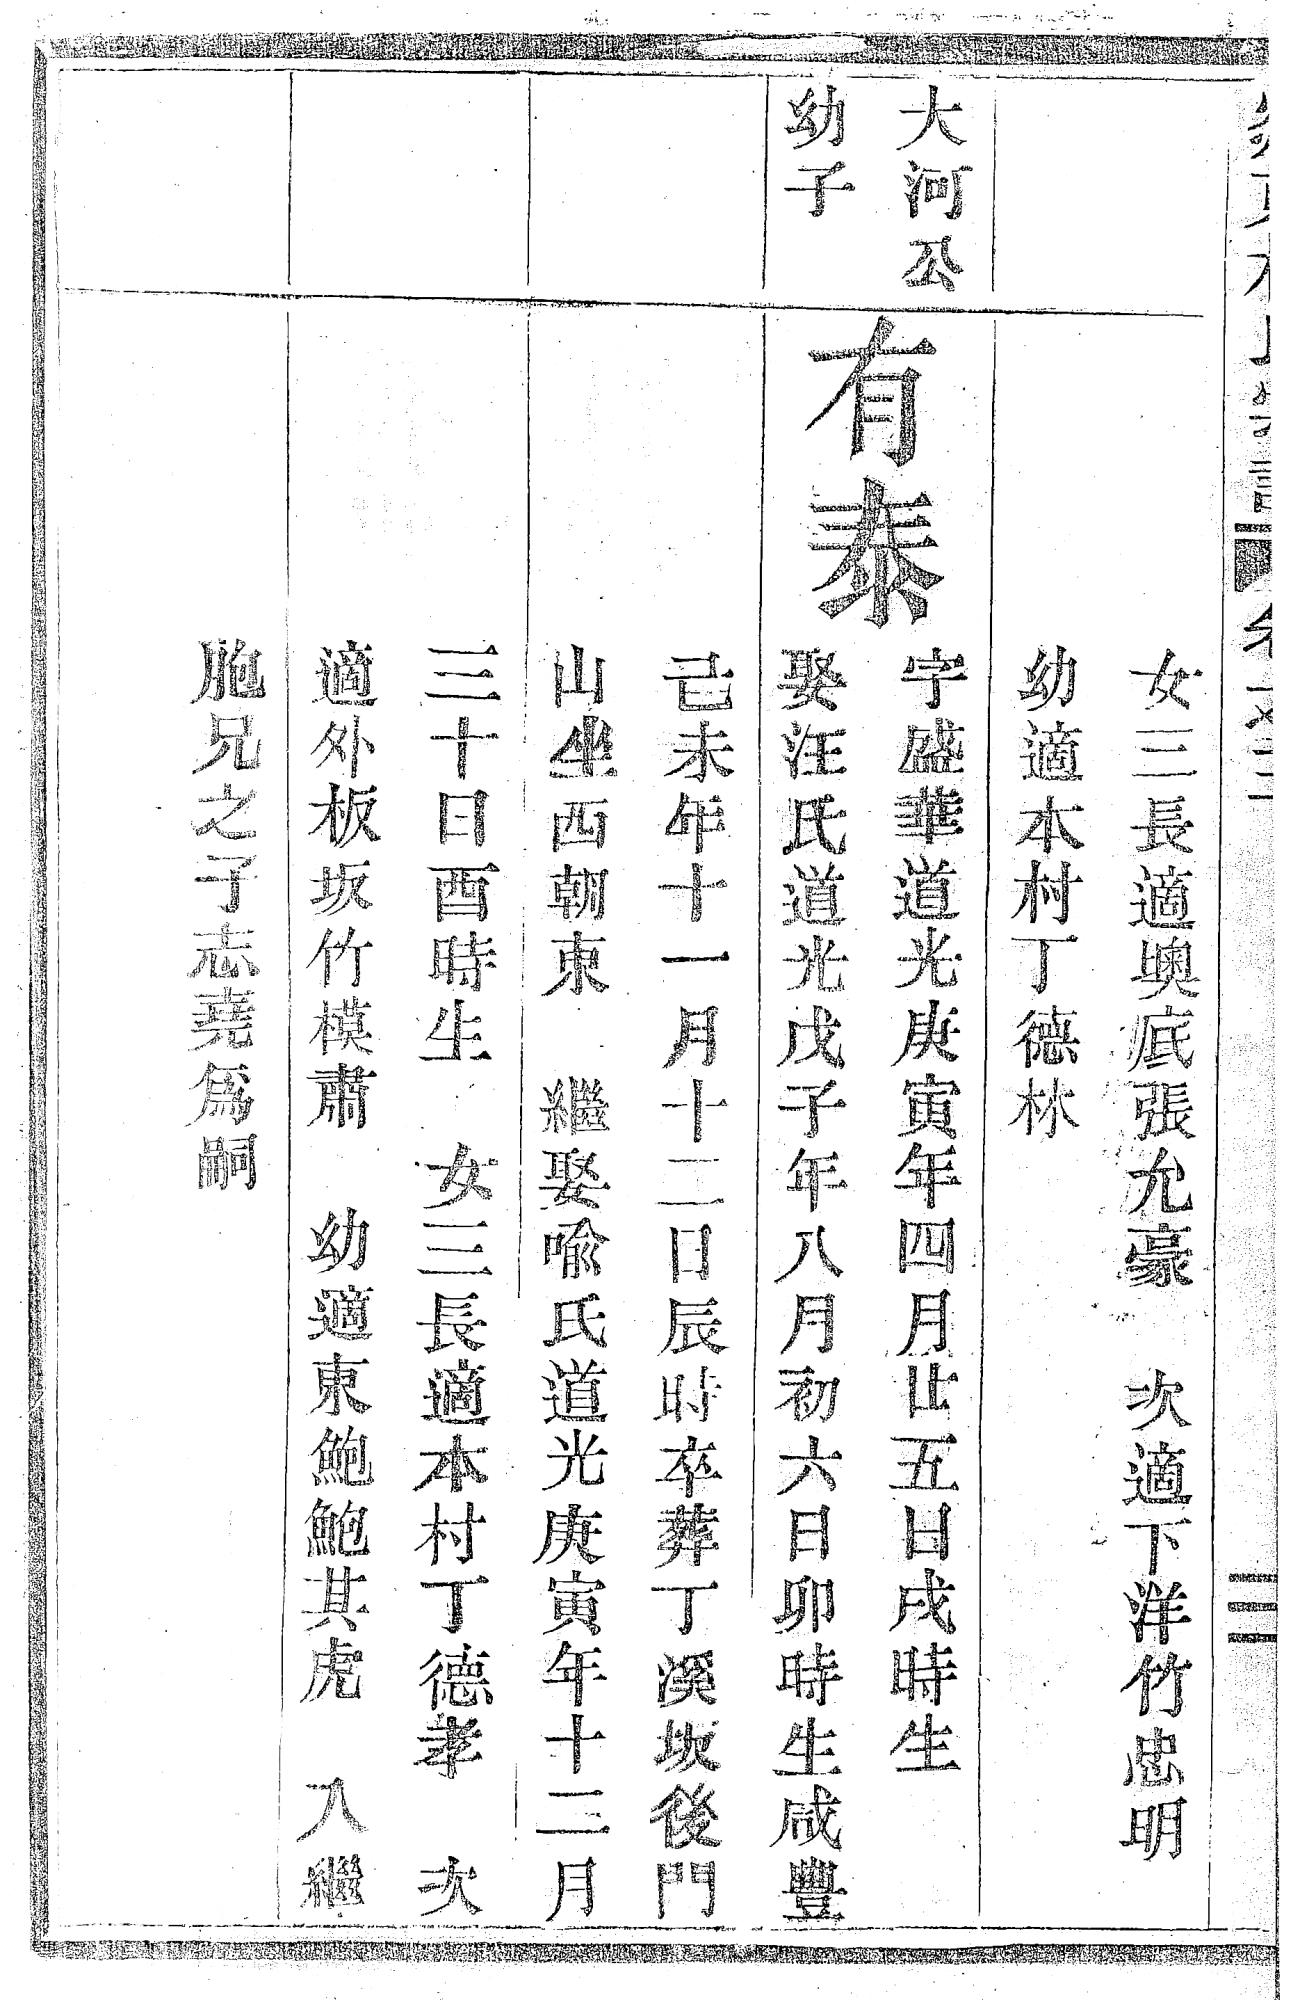 女三長適墺底張允豪　次適下洋竹忠明
幼適本村丁德林
大河公
幼子
有泰
字盛華道光庚寅年四月廿五日戌時生
娶汪氏道光戊子年八月初六日卯時生咸豐
己未年十一月十二日辰時卒葬丁溪坂後門
山坐西朝東　繼娶喻氏道光庚寅年十二月
三十日酉時生　女三長適本村丁德孝　次
適外板坂竹模肅　幼適東鮑鮑其虎　入繼
胞兄之子志堯為嗣